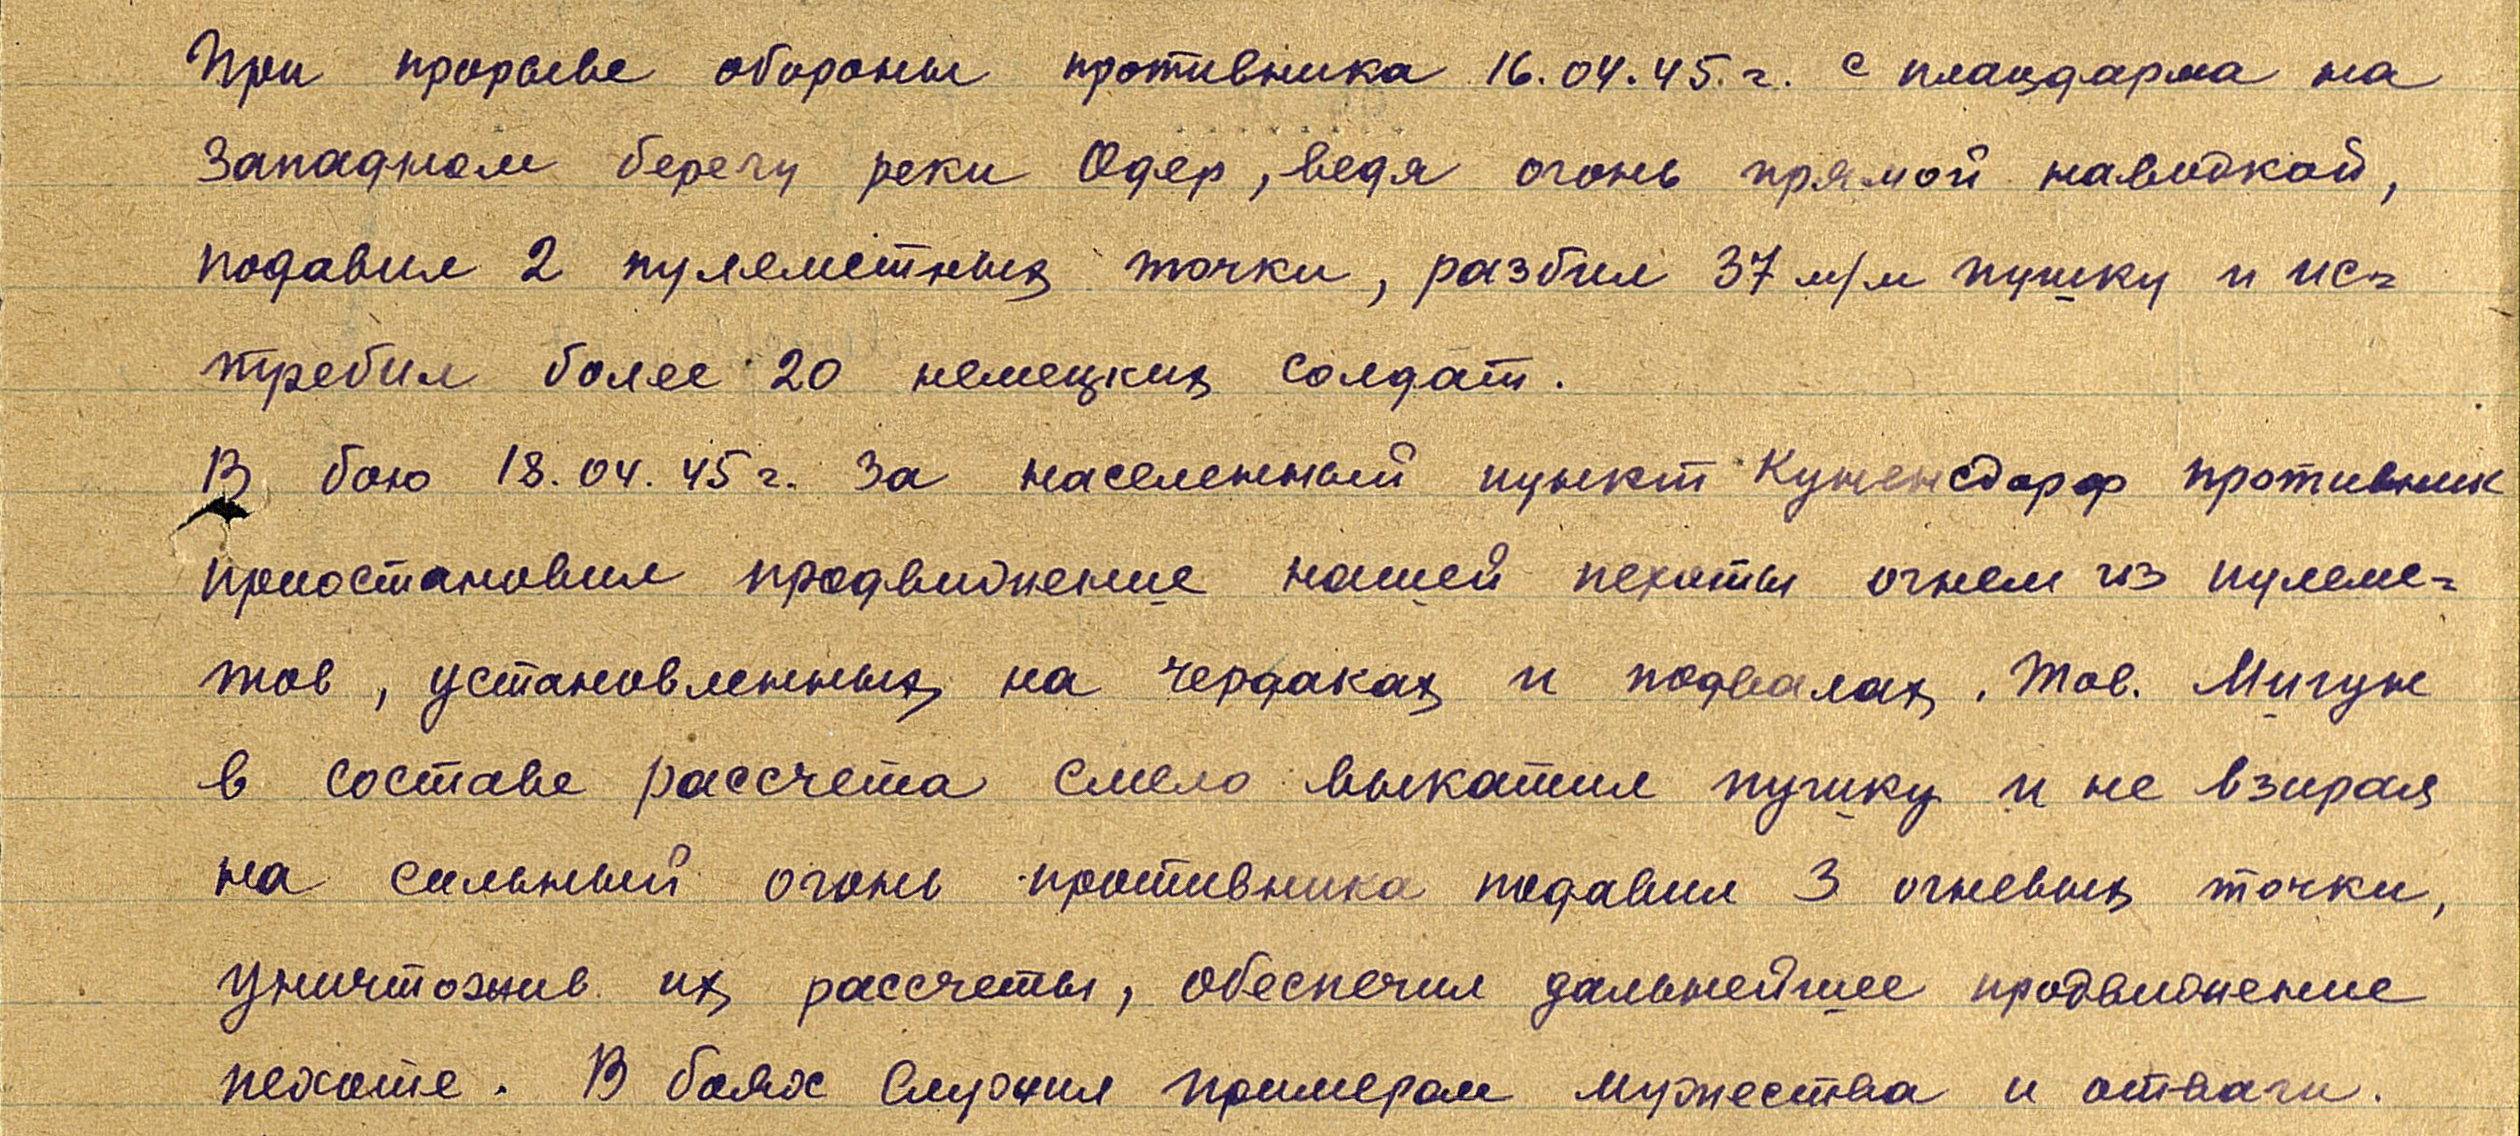 При прорыве обороны противника 16.04.45.г. с плацдарма на
Западном берегу реки Одер, ведя огонь прямой наводкой,
подавил 2 пулеметных точки, разбил 37 м/м пушку и ис=
требил более 20 немецких солдат.
В бою 18.04.45 г. за населенный пункт Куненсдорф противник
приостановил продвижение нашей пехоты огнем из пулеме=
тов, установленных на чердаках и подвалах. Тов. Мигун
в составе рассчета смело выкатил пушку и не взирая
на сильный огонь противника подавил 3 огневых точки,
уничтожив их рассчеты, обеспечил дальнейшее продвижение
пехоте. В боях служил примером мужества и отваги.